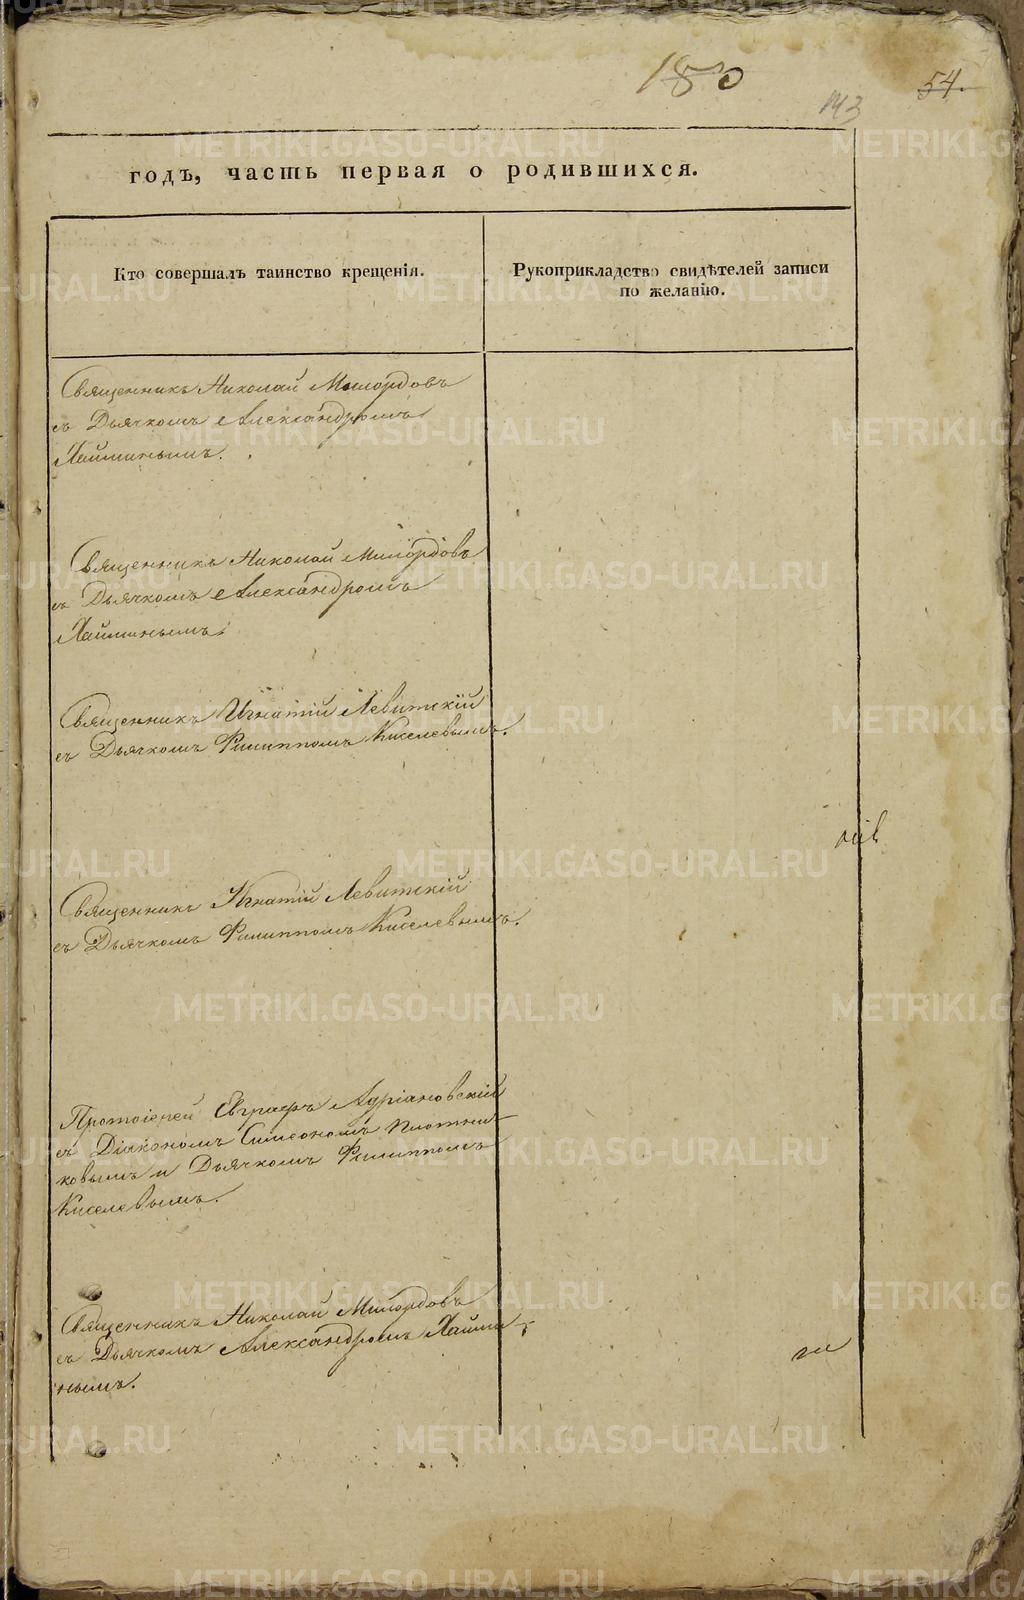 180
143
54.
годъ, часть первая о родившихся.
Кто совершалъ таинство крещенія.
Рукоприкладство свидѣтелей записи
по желанію.
Священникъ Николай Милордовъ
съ Дьячкомъ Александромъ
Хайминымъ.
Священникъ Николай Милордовъ
съ Дьячкомъ Александромъ
Хайминымъ
Священникъ Игнатій Левитскій
съ Дьячкомъ Филиппомъ Киселевымъ.
Священникъ Игнатій Левитскій
съ Дьячкомъ Филиппомъ Киселевымъ.
Протоіерей Евграфъ Адріановскій
съ Діакономъ Симеономъ Плотни-
ковымъ и Дьячкомъ Филиппомъ
Киселевымъ.
Священникъ Николай Милордовъ
съ Дьячкомъ Александромъ Хайми-
нымъ.
METRIKI.GASO-URAL.RU